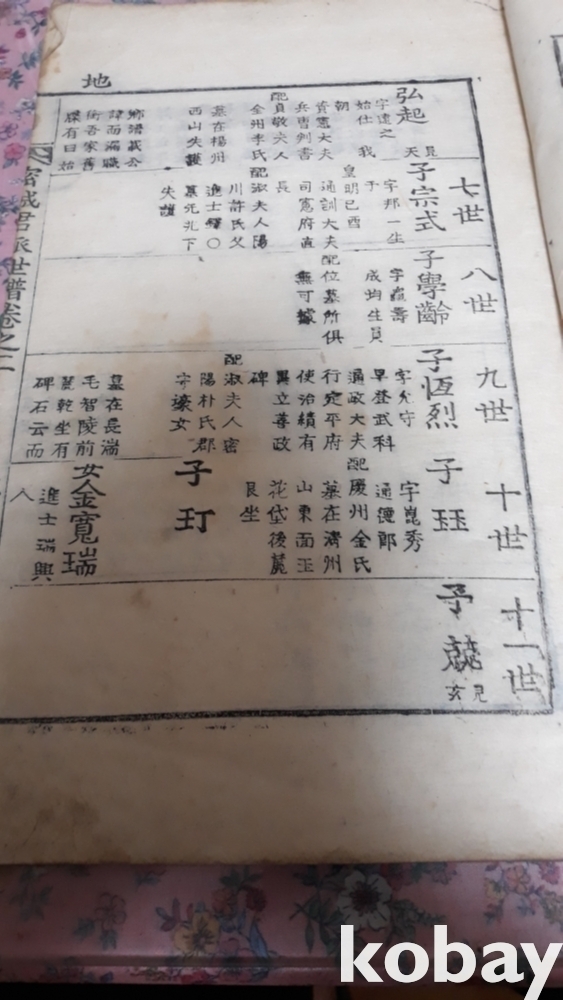 地
七世
八世
九世
十世
十一世
弘起
字遠之
始仕我
朝
資憲大夫
兵曹判書
配貞敬夫人
全州李氏
墓在楊州
西山失護
鄉譜載公
諱而漏職
街吾家舊
牒有曰始
見天
子宗式
字邦一生
于
皇明己酉
通訓大夫
司憲府直
長
配淑夫人陽
川許氏父
進士鐸〇
墓死北下
失護
子學齡
字壽
成均生員
配位墓所俱
無可據
子恆烈
字允守
早登武科
通政大夫
行定平府
使治績有
異立善政
碑
配淑夫人密
陽朴氏郡
守濠女
墓在長湍
毛智陵前
麓乾坐有
碑石云而
子珏
字崑秀
通德郎
配慶州金氏
墓在濟州
山東面玉
花岱後麓
艮坐
子玎
女金寬瑞
進士瑞興
人
子兢
見玄
密城君派世譜卷之二
kobay